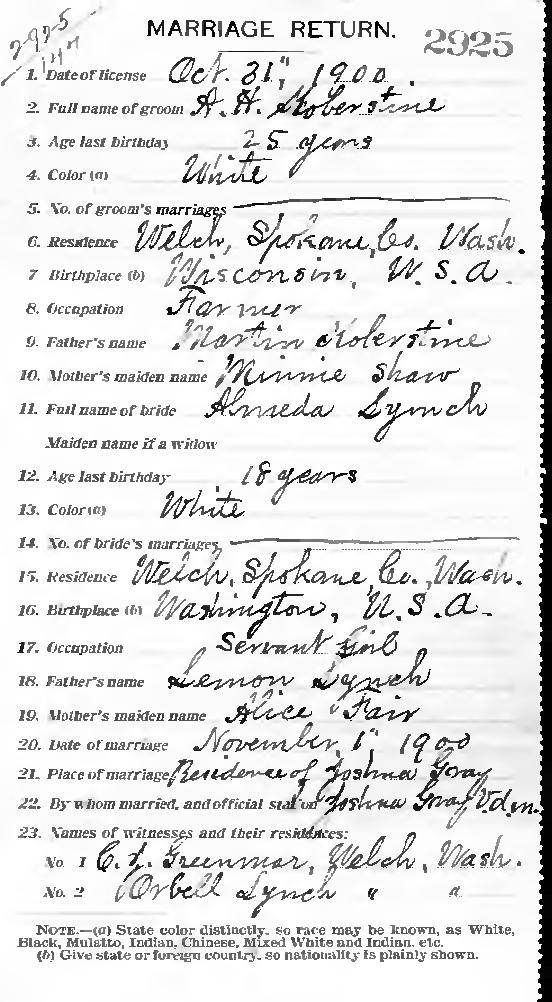 2925
147
MARRIAGE RETURN.
2925
1. Date of license Oct. 31", 1900.
2. Full name of groom A. H. Koberstine
3. Age last birthday 25 years
4. Color (a) White
5. No. of groom's marriages
6. Residence Welch, Spokane, Co. Wash.
7 Birthplace (b) Wisconsin, U. S. A.
8. Occupation Farmer
9. Father's name Martin Koberstine
10. Mother's maiden name Minnie Shaw
11. Full name of bride Almeda Lynch
Maiden name if a widow
12. Age last birthday 18 years
13. Color (a) White
14. No. of bride's marriages
15. Residence Welch, Spokane, Co., Wash.
16. Birthplace (b) Washington, U. S. A.
17. Occupation Servant Girl
18. Father's name Lemon Lynch
19. Mother's maiden name Alice Fair
20. Date of marriage November 1", 1900
21. Place of marriage Residence of Joshua Gray
22. By whom married, and official station Joshua Gray V.d.m.
23. Names of witnesses and their residences:
No. 1 Welch, Wash.
No. 2 Orbell Lynch " "
NOTE.—(a) State color distinctly, so race may be known, as White,
Black, Mulatto, Indian, Chinese, Mixed White and Indian, etc.
(b) Give state or foreign country, so nationality is plainly shown.